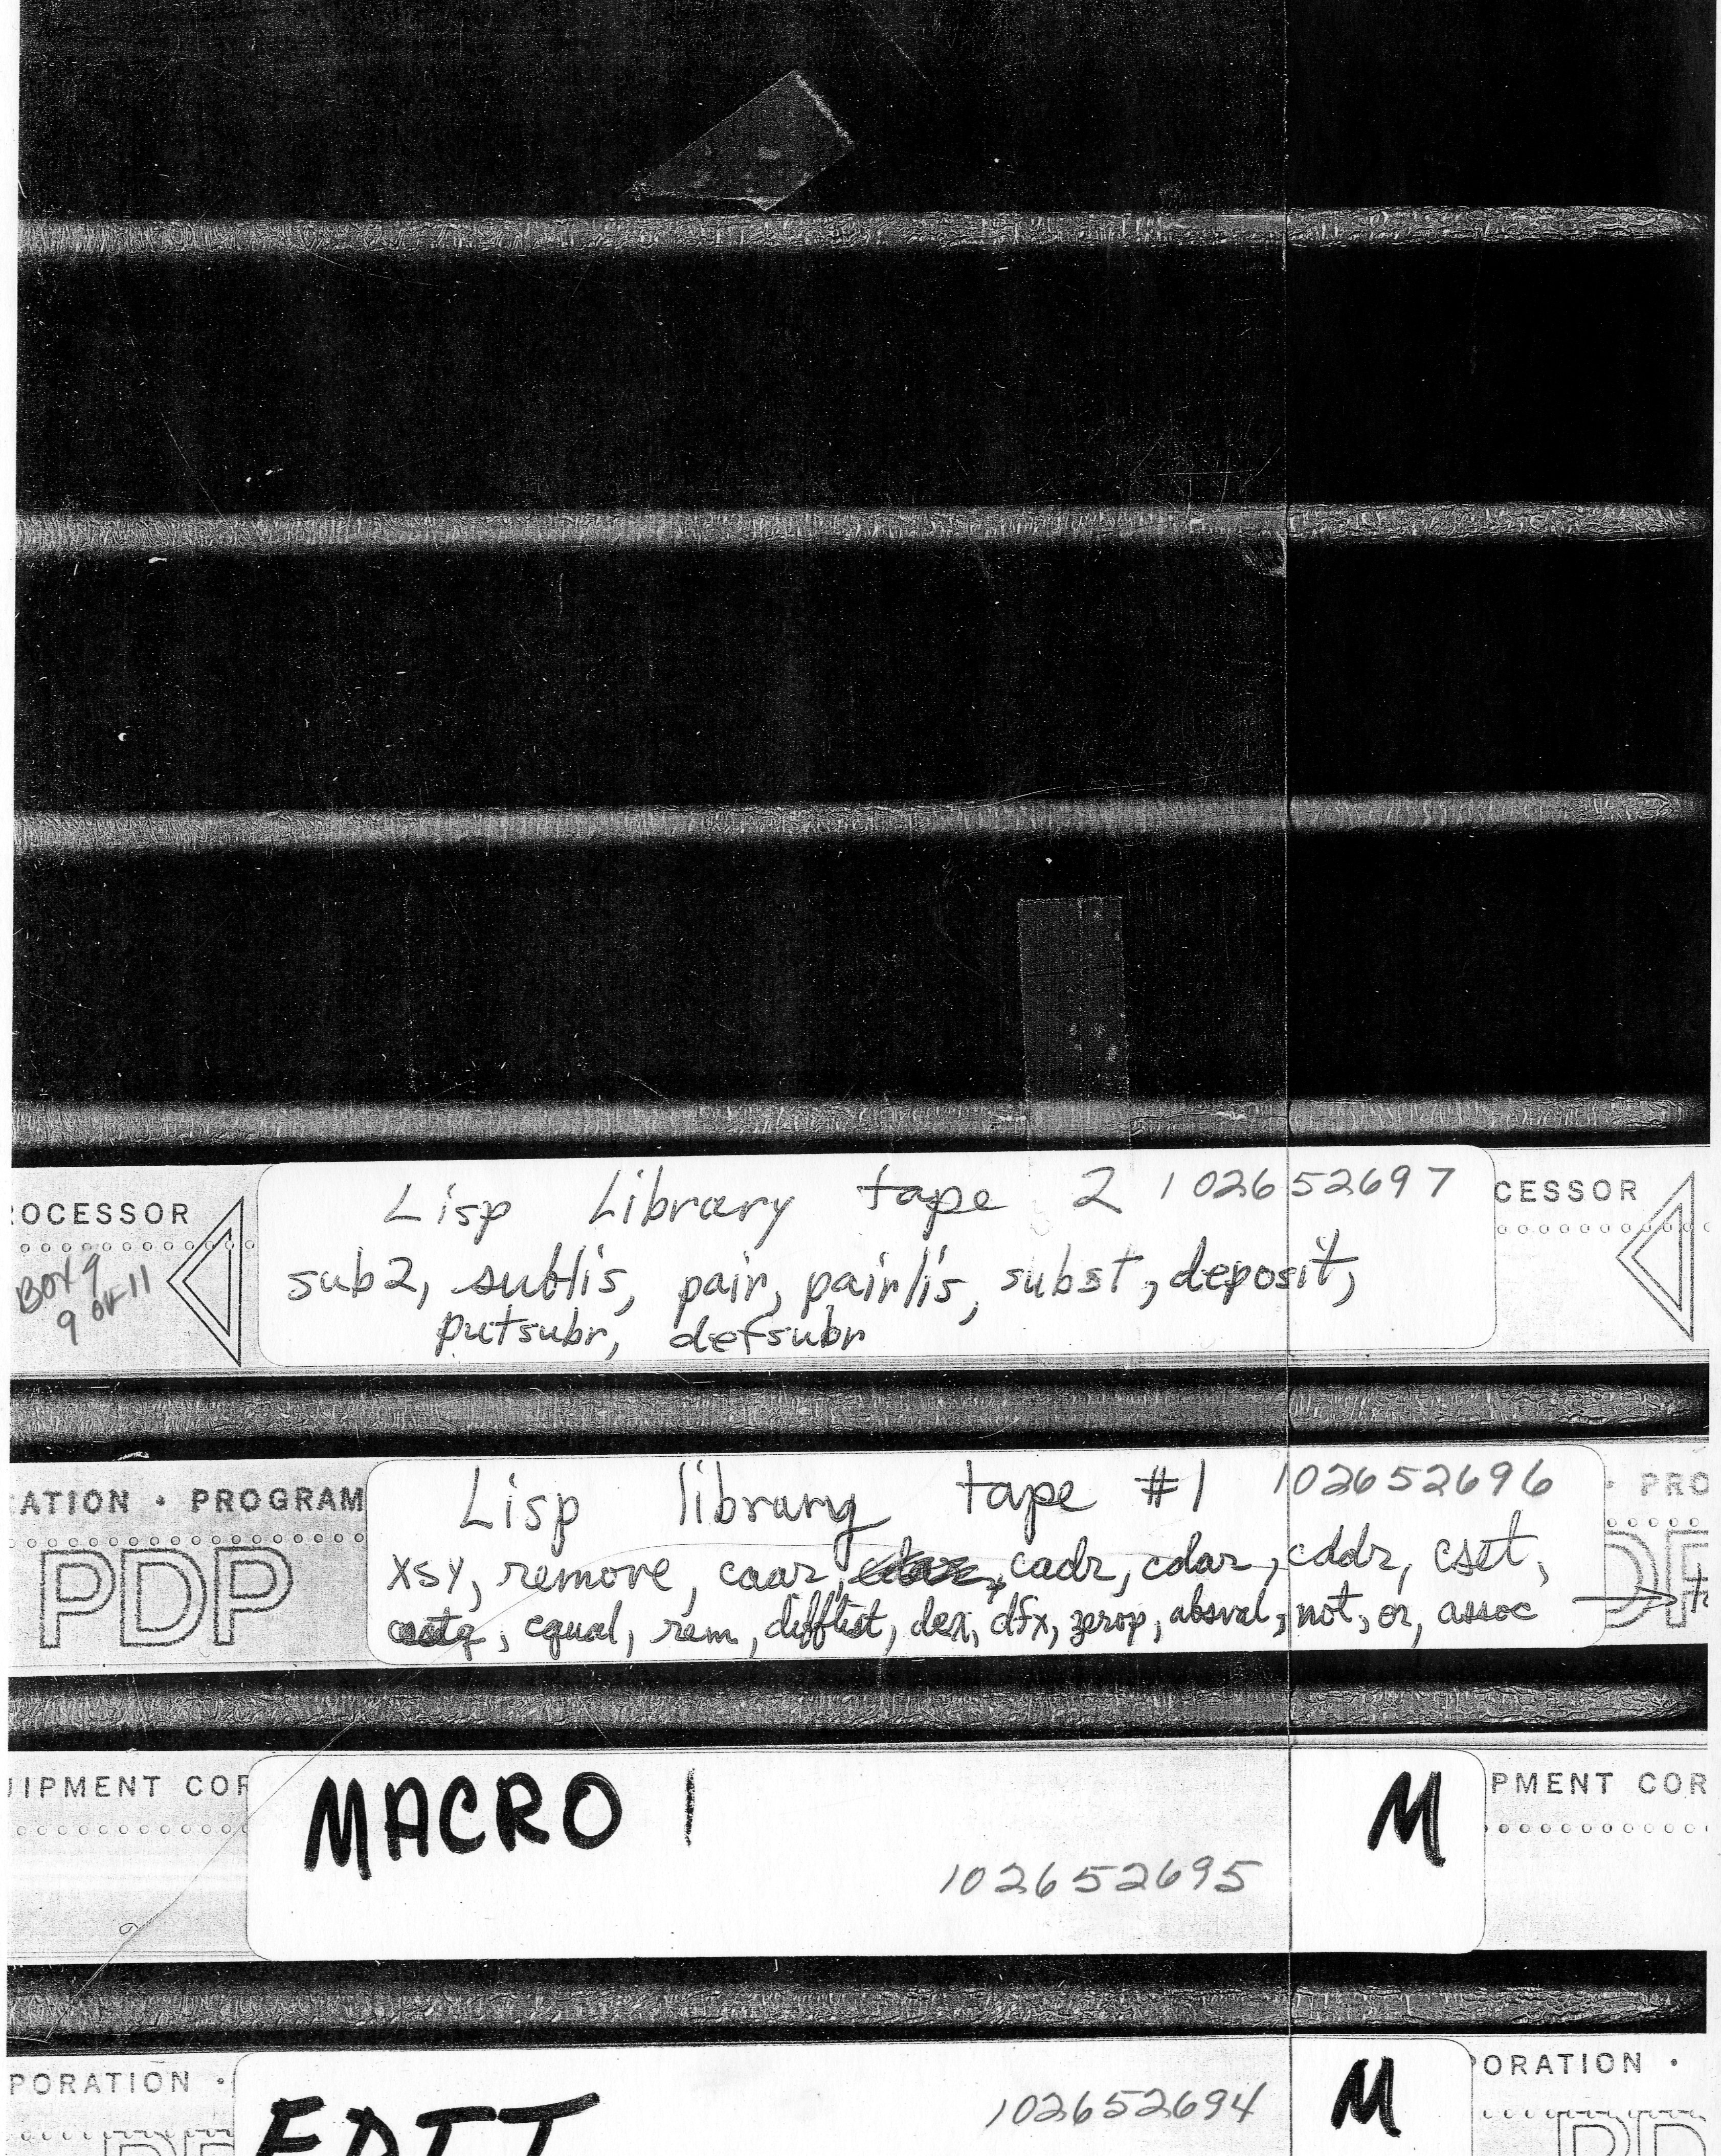 Lisp Library tape 2 102652697
OCESSOR
CESSOR
BOX 9
9 OF 11
sub2, sublis, pair, pairlis, subst, deposit,
putsubr, defsubr
Lisp library tape #1 102652696
ATION · PROGRAM
· PRO
PDP
xsy, remove, caar, cadr, cdar, cddr, cset,
csetq, equal, rem, difflist, dex, dfx, zerop, absval, not, or, assoc →
UIPMENT COR
MACRO 1
M
PMENT COR
102652695
PORATION ·
EDIT
102652694
M
PORATION ·